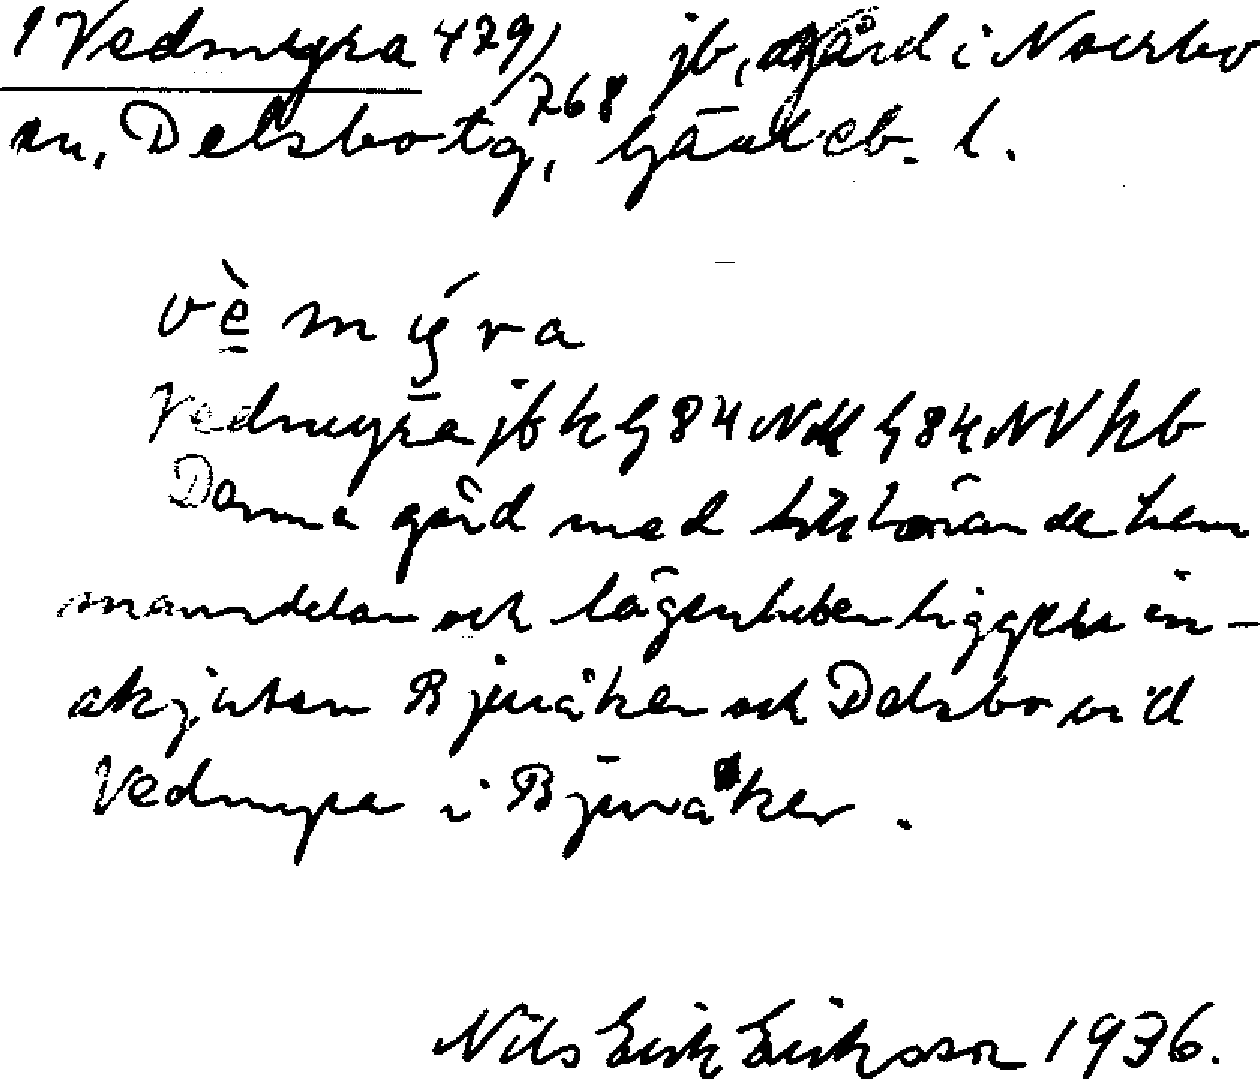 1 Vedmyra 479/768 jb, gård i Norrbo
sn, Delsbo tg, Gävleb. l.
vè mýra
Vedmyra jb k G 84 NV hb
Denna gård med tillhörande hem
mansdelar och lägenheter ligger in-
skjuten Bjuråker och Delsbo vid
Vedmyra i Bjuråker.
Nils Erik Eriksson 1936.